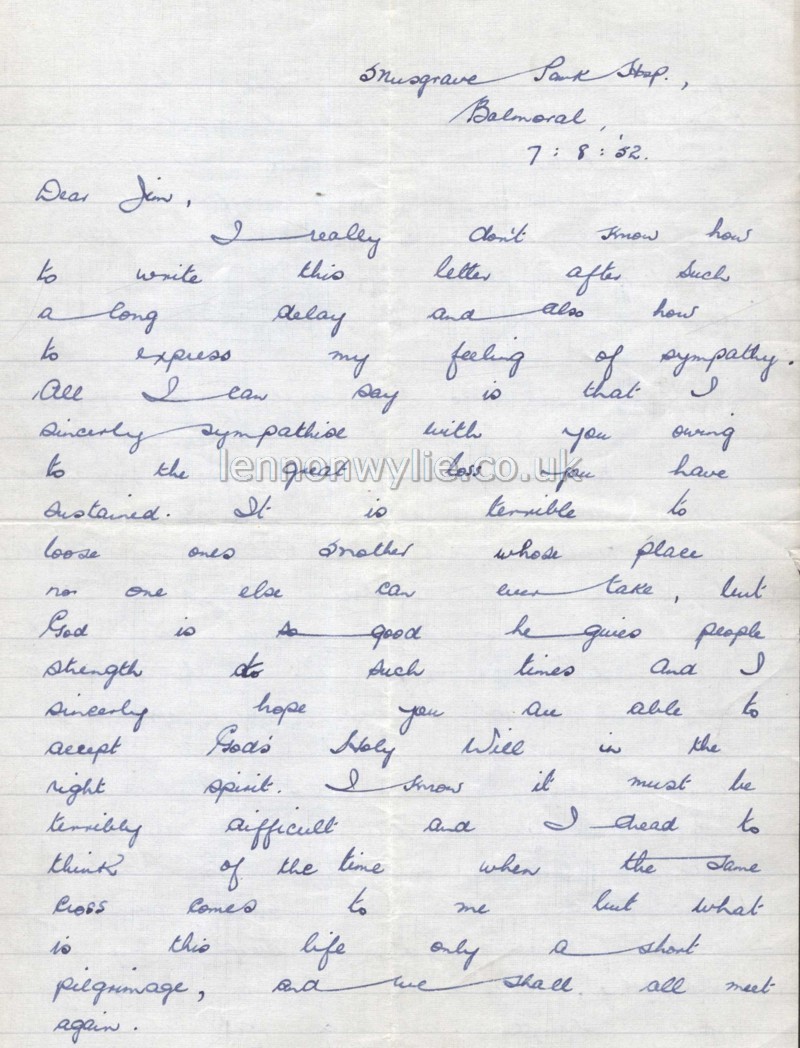 Musgrave Park Hosp.,
Balmoral,
7 : 8 : '52.
Dear Jim,
I really don't know how
to write this letter after such
a long delay and also how
to express my feeling of sympathy.
All I can say is that I
sincerly sympathise with you owing
to the great loss you have
lennonwylie.co.uk
sustained. It is terrible to
loose ones Mother whose place
no one else can ever take, but
God is so good he gives people
strength at such times and I
sincerly hope you are able to
accept God's Holy Will in the
right spirit. I know it must be
terribly difficult and I dread to
think of the time when the same
cross comes to me but what
is this life only a short
pilgrimage, and we shall all meet
again.